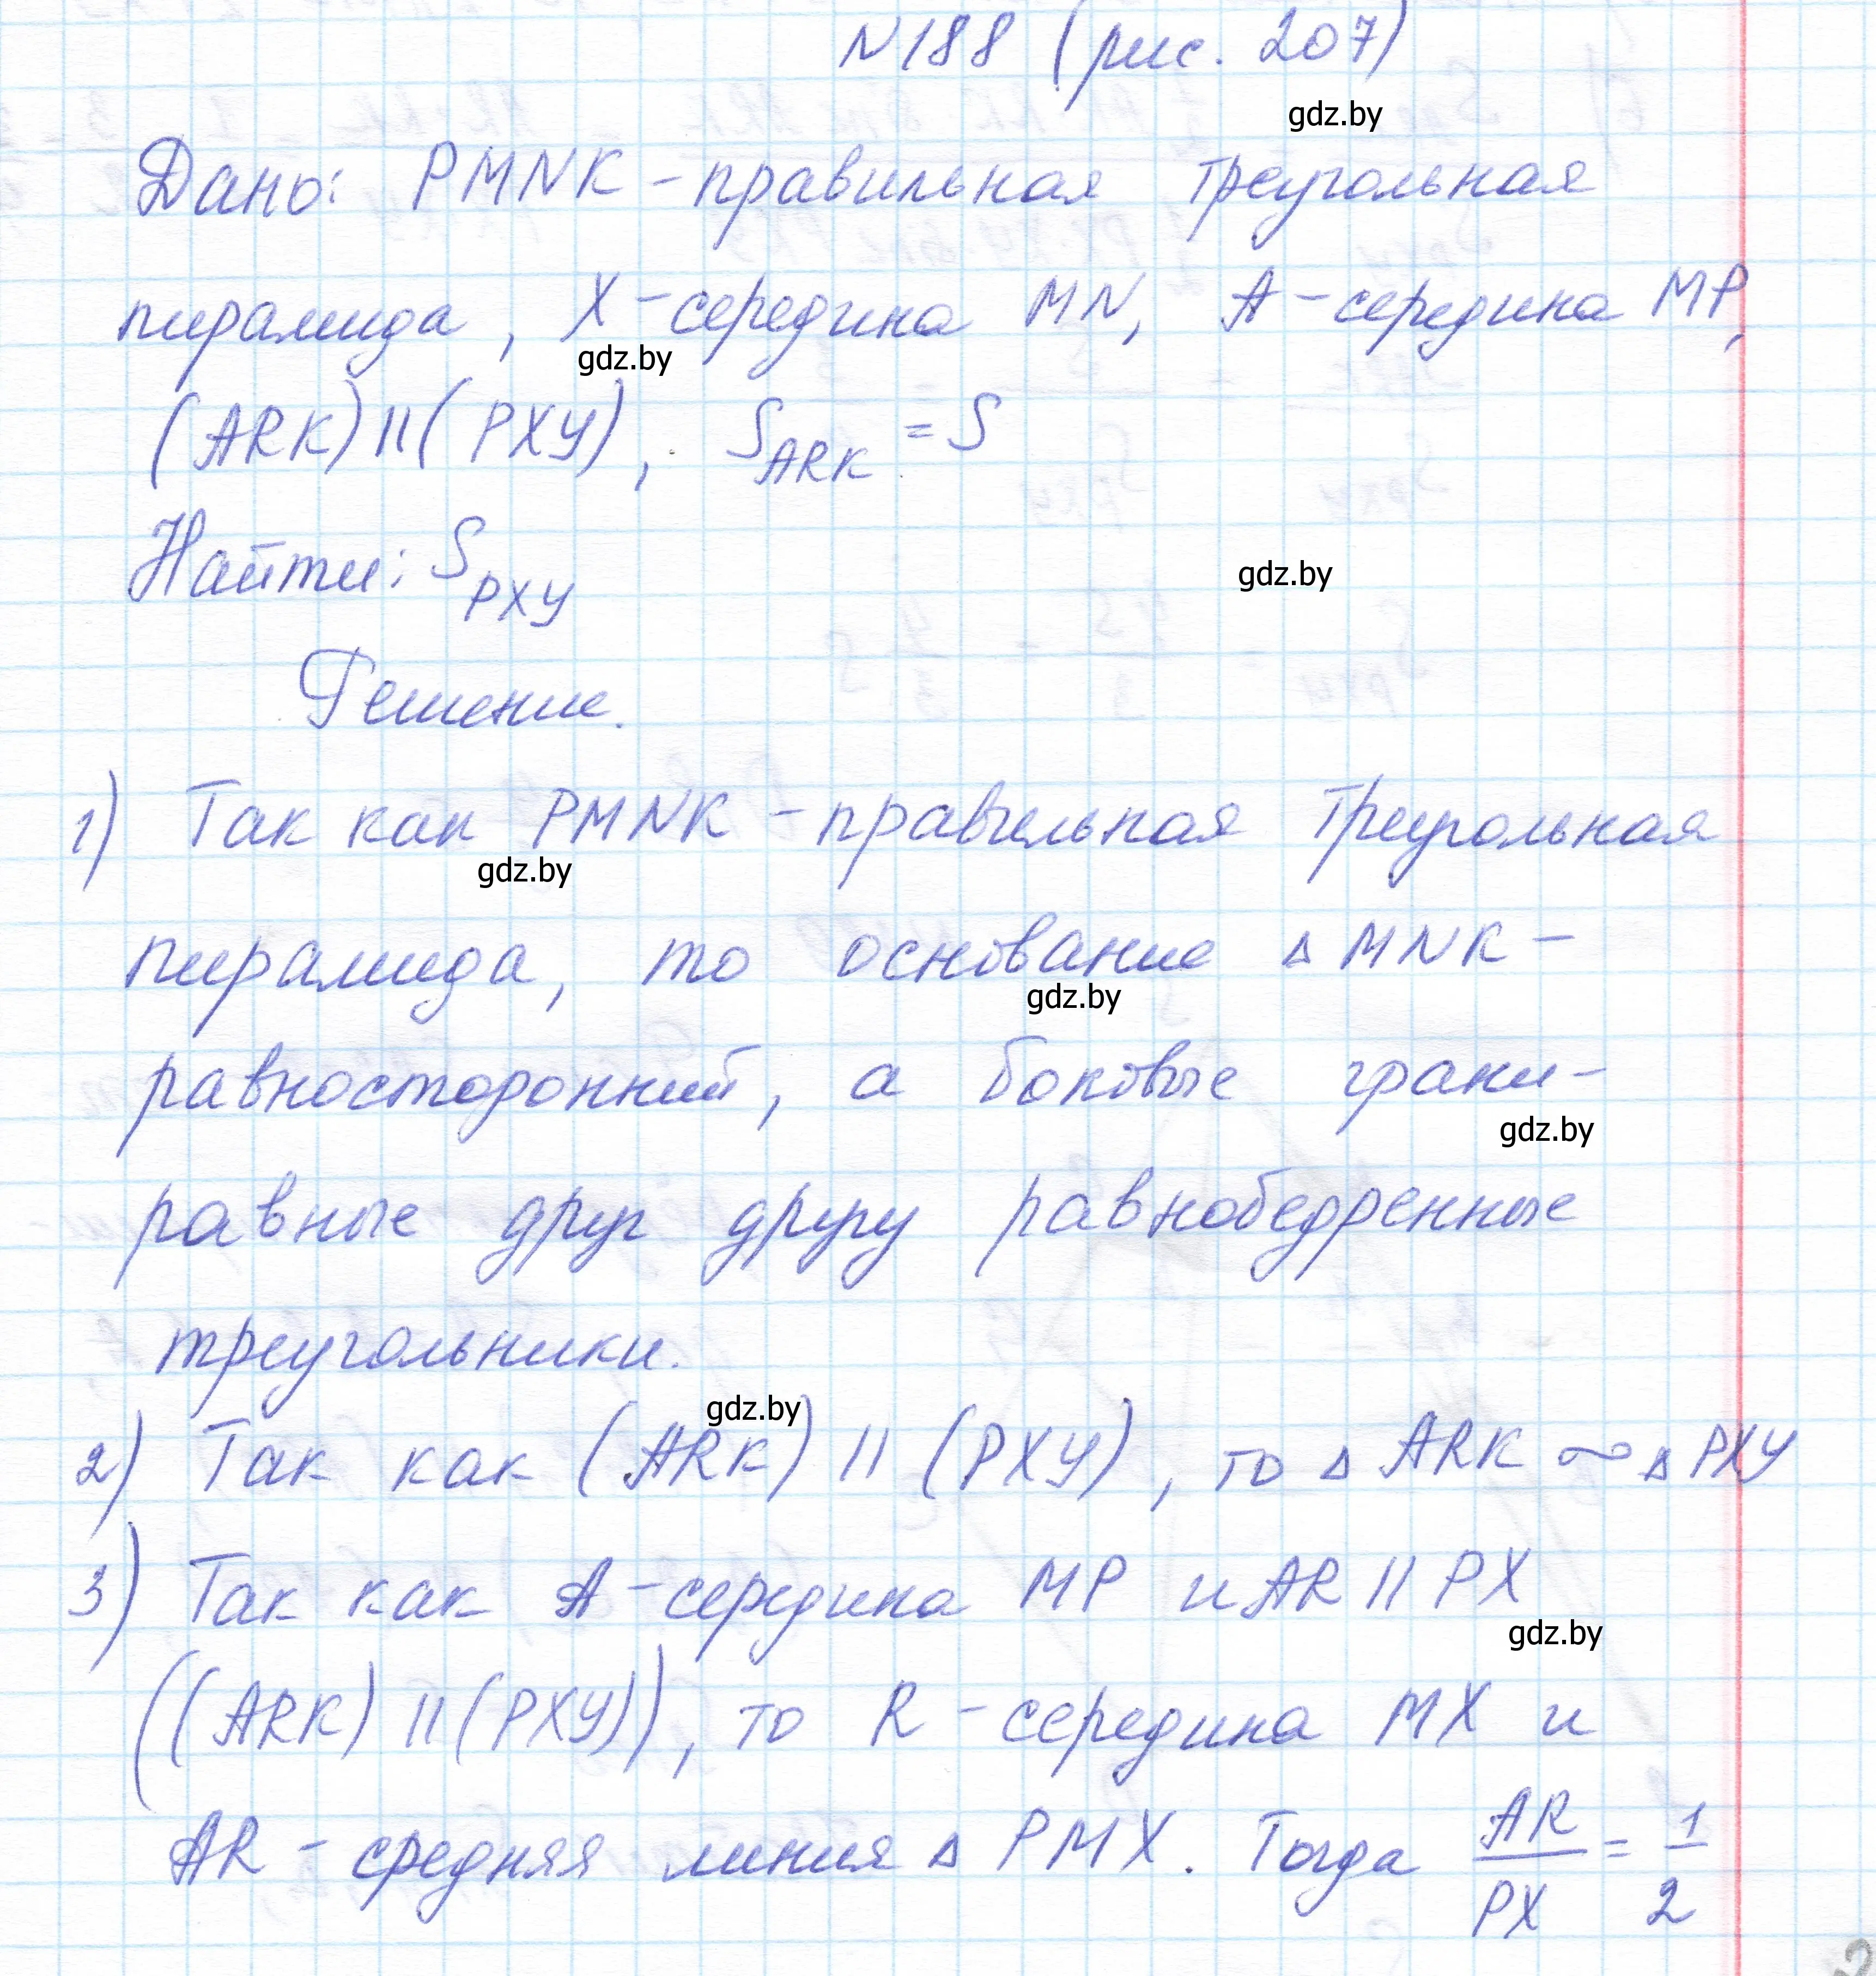 N188 (рис. 207)
gdz.by
Дано: PMNK - правильная треугольная
пирамида, X - середина MN, A - середина MP,
gdz.by
(ARK) II (PXY), S_ARK = S
Найти: S_PXY
gdz.by
Решение.
1) Так как PMNK - правильная треугольная
gdz.by
пирамида, то основание Δ MNK -
gdz.by
равносторонний, а боковые грани -
gdz.by
равные друг другу равнобедренные
треугольники.
gdz.by
2) Так как (ARK) II (PXY), то Δ ARK ∼ Δ PXY
3) Так как A - середина MP и AR II PX
gdz.by
((ARK) II (PXY)), то R - середина MX и
AR - средняя линия Δ PMX. Тогда AR/PX = 1/2